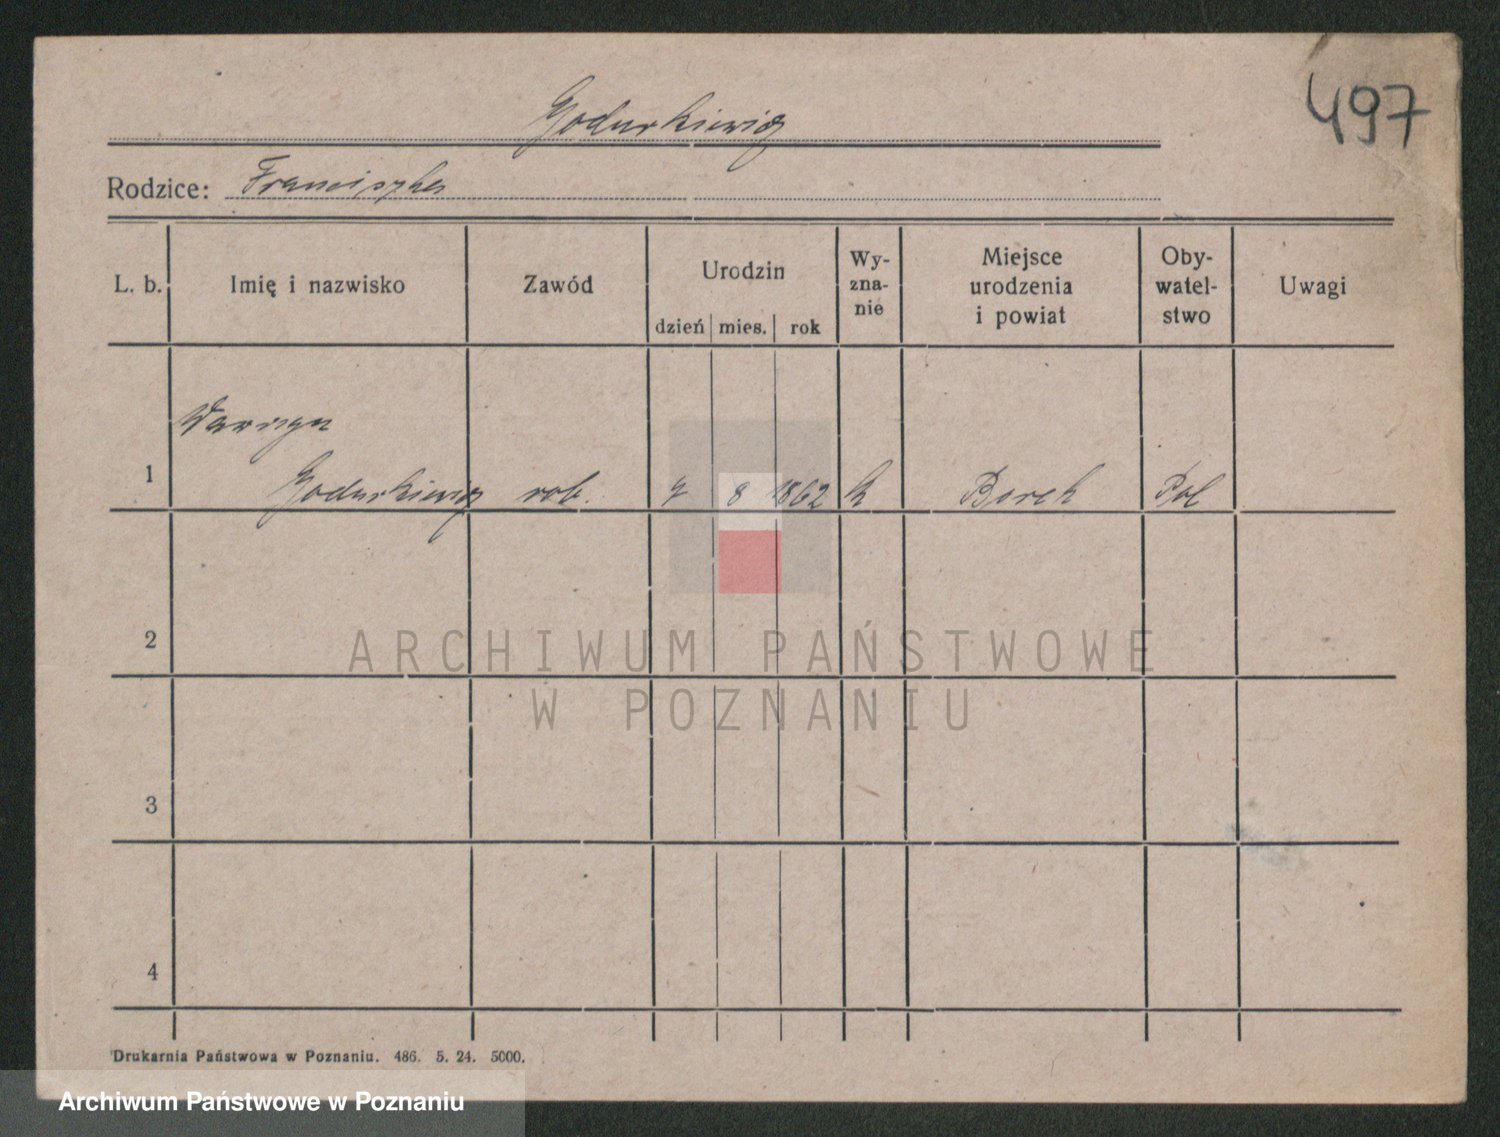 497
Godurkiewicz
Rodzice: Franciszka
L. b. Imię i nazwisko Zawód Urodzin dzień mies. rok Wy-zna-nie Miejsce urodzenia i powiat Oby-watel-stwo Uwagi
1 Wawrzyn
Godurkiewicz rob. 7 8 1862 k Borek Pol
2
ARCHIWUM PAŃSTWOWE
W POZNANIU
3
4
Drukarnia Państwowa w Poznaniu. 486. 5. 24. 5000.
Archiwum Państwowe w Poznaniu